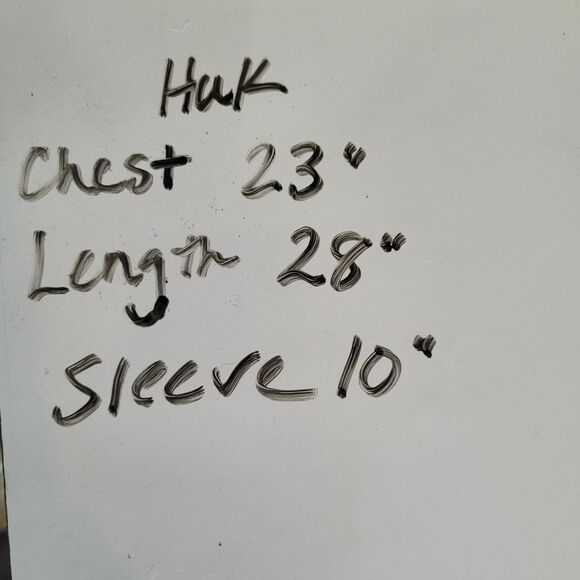 Huk
Chest 23"
Length 28"
Sleeve 10"